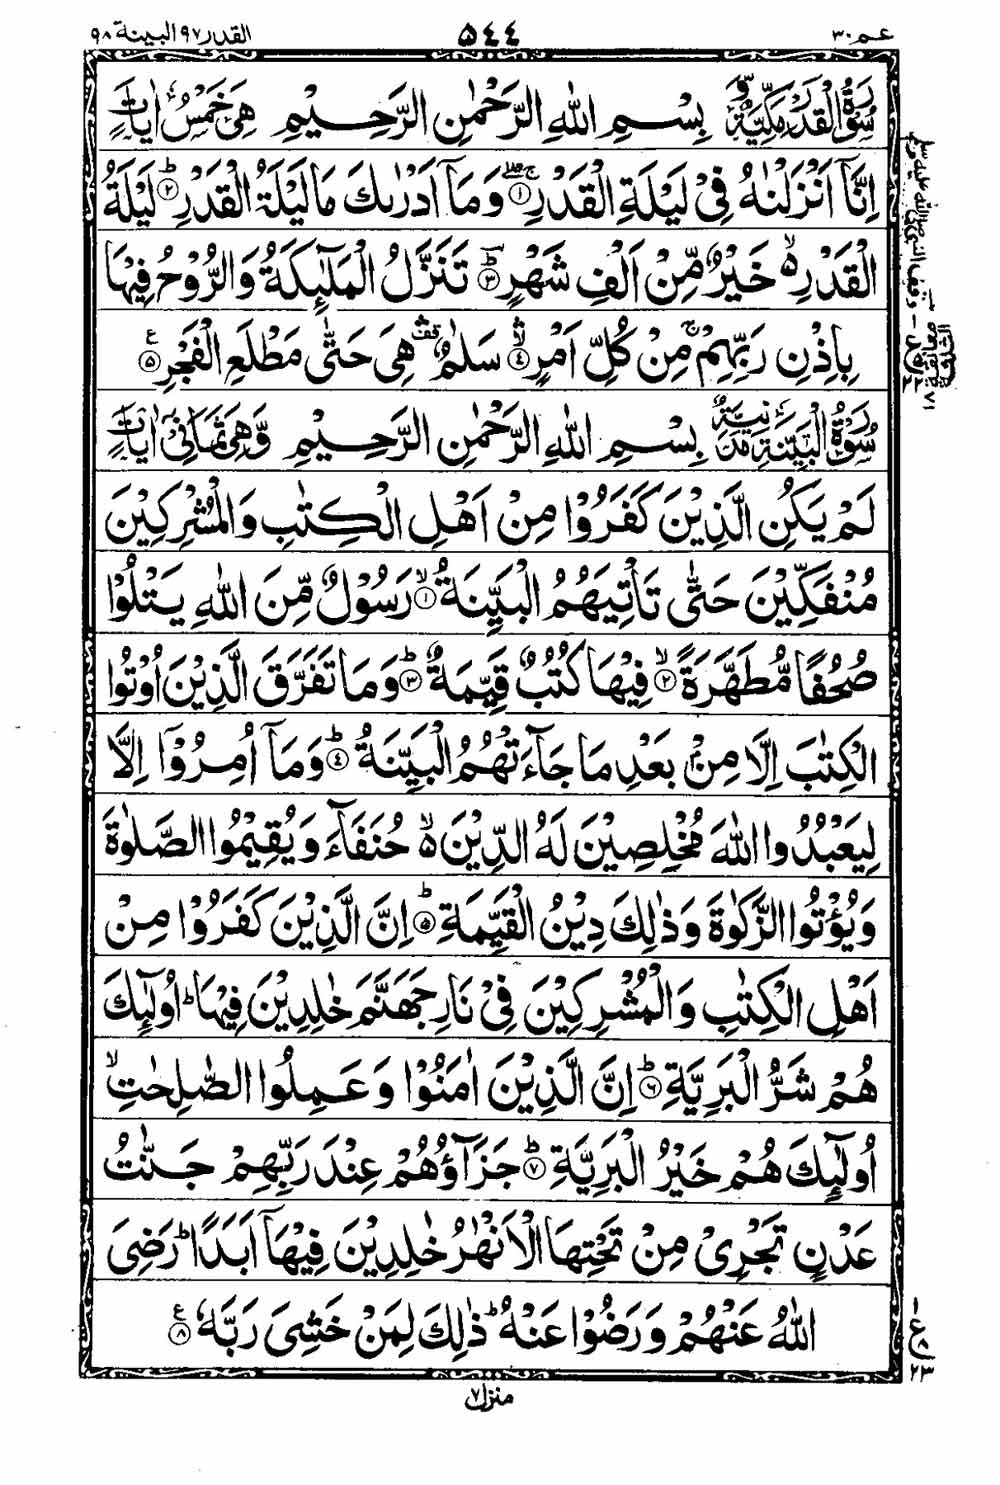 عم ٣٠
٥٤٤
القدر ٩٧ البينة ٩٨
سُوْرَةُ الْقَدْرِ مَكِّيَّةٌ وَّ بِسْمِ اللّٰهِ الرَّحْمٰنِ الرَّحِيْمِ هِيَ خَمْسُ اٰيَاتٍ
اِنَّاۤ اَنْزَلْنٰهُ فِيْ لَيْلَةِ الْقَدْرِ ۚۖ ١ وَمَاۤ اَدْرٰىكَ مَا لَيْلَةُ الْقَدْرِ ؕ ٢ لَيْلَةُ
الْقَدْرِ ۙ۬ خَيْرٌ مِّنْ اَلْفِ شَهْرٍ ؕؔ ٣ تَنَزَّلُ الْمَلٰٓئِكَةُ وَالرُّوْحُ فِيْهَا
بِاِذْنِ رَبِّهِمْ ۚ مِنْ كُلِّ اَمْرٍ ۙۛ ٤ سَلٰمٌ ۛ۫ هِيَ حَتّٰى مَطْلَعِ الْفَجْرِ ع ٥
سُوْرَةُ الْبَيِّنَةِ مَدَنِيَّةٌ بِسْمِ اللّٰهِ الرَّحْمٰنِ الرَّحِيْمِ وَّهِيَ ثَمَانِيْ اٰيَاتٍ
لَمْ يَكُنِ الَّذِيْنَ كَفَرُوْا مِنْ اَهْلِ الْكِتٰبِ وَالْمُشْرِكِيْنَ
مُنْفَكِّيْنَ حَتّٰى تَاْتِيَهُمُ الْبَيِّنَةُ ۙ ١ رَسُوْلٌ مِّنَ اللّٰهِ يَتْلُوْا
صُحُفًا مُّطَهَّرَةً ۙ ٢ فِيْهَا كُتُبٌ قَيِّمَةٌ ؕ ٣ وَمَا تَفَرَّقَ الَّذِيْنَ اُوْتُوا
الْكِتٰبَ اِلَّا مِنْۢ بَعْدِ مَا جَآءَتْهُمُ الْبَيِّنَةُ ؕ ٤ وَمَاۤ اُمِرُوْۤا اِلَّا
لِيَعْبُدُوا اللّٰهَ مُخْلِصِيْنَ لَهُ الدِّيْنَ ۙ۬ حُنَفَآءَ وَيُقِيْمُوا الصَّلٰوةَ
وَيُؤْتُوا الزَّكٰوةَ وَذٰلِكَ دِيْنُ الْقَيِّمَةِ ؕ ٥ اِنَّ الَّذِيْنَ كَفَرُوْا مِنْ
اَهْلِ الْكِتٰبِ وَالْمُشْرِكِيْنَ فِيْ نَارِ جَهَنَّمَ خٰلِدِيْنَ فِيْهَا ؕ اُولٰٓئِكَ
هُمْ شَرُّ الْبَرِيَّةِ ؕ ٦ اِنَّ الَّذِيْنَ اٰمَنُوْا وَعَمِلُوا الصّٰلِحٰتِ ۙ
اُولٰٓئِكَ هُمْ خَيْرُ الْبَرِيَّةِ ؕ ٧ جَزَآؤُهُمْ عِنْدَ رَبِّهِمْ جَنّٰتُ
عَدْنٍ تَجْرِيْ مِنْ تَحْتِهَا الْاَنْهٰرُ خٰلِدِيْنَ فِيْهَاۤ اَبَدًا ؕ رَضِيَ
اللّٰهُ عَنْهُمْ وَرَضُوْا عَنْهُ ؕ ذٰلِكَ لِمَنْ خَشِيَ رَبَّهٗ ع ٨
منزل ٧